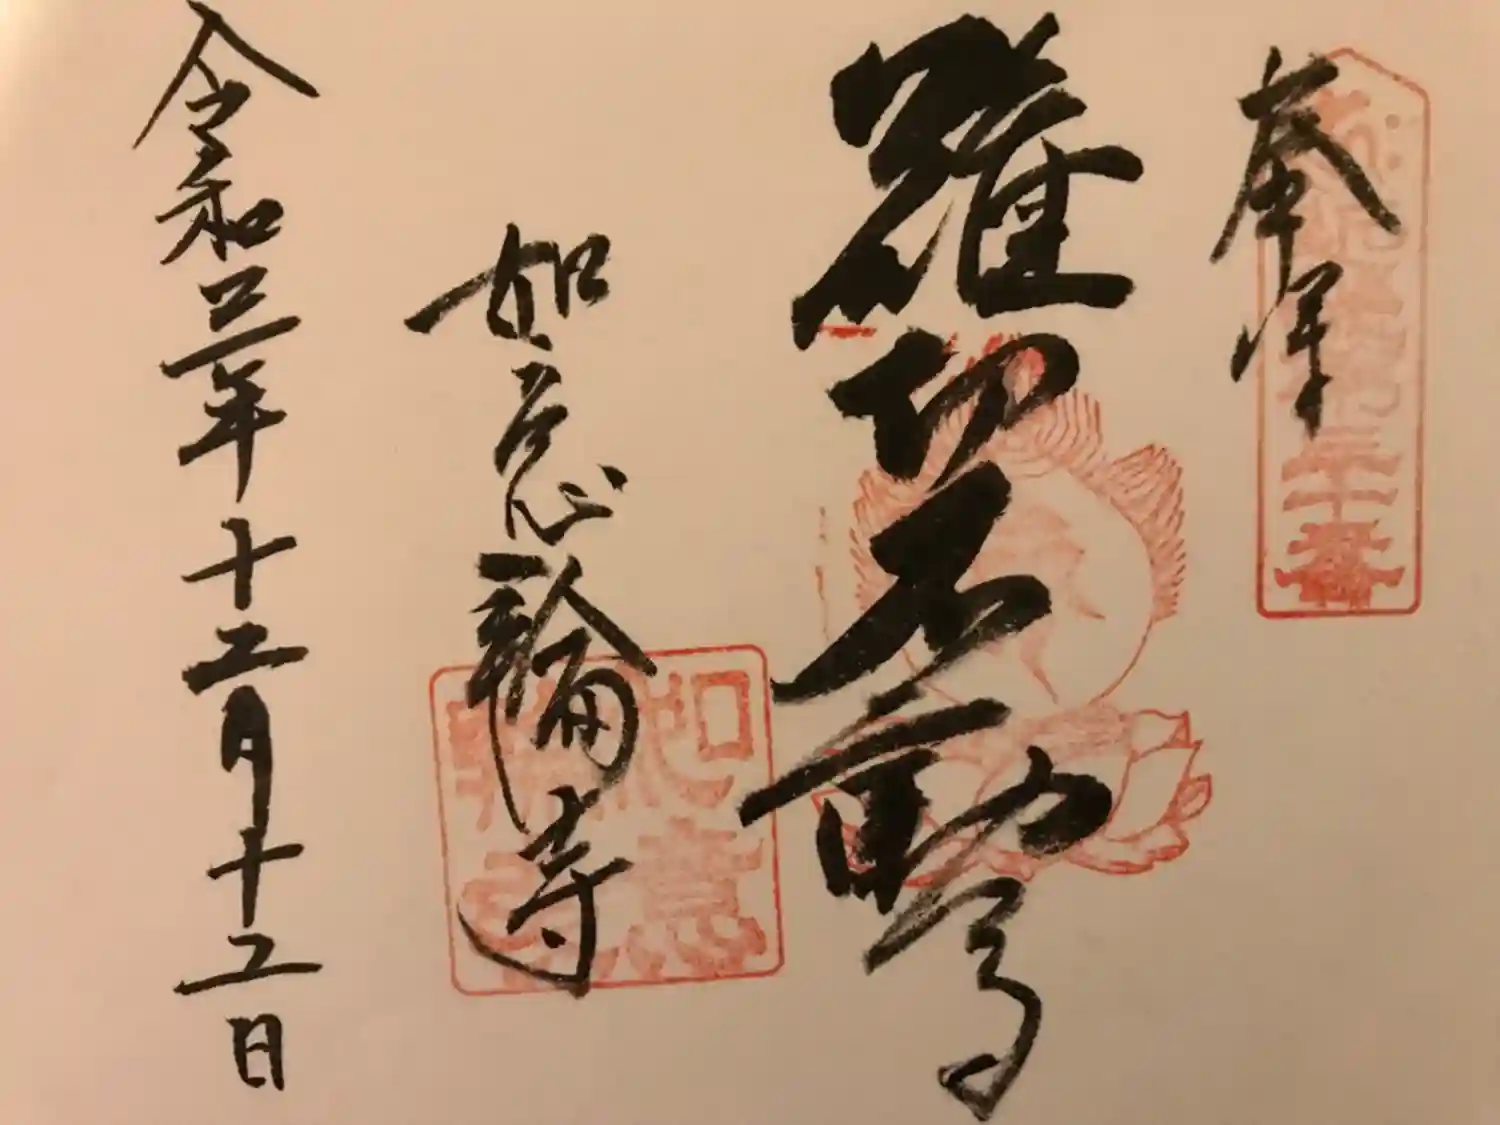 奉拝
三十番
難切不動尊
如意輪寺
如意
輪寺
令和三年十二月十二日